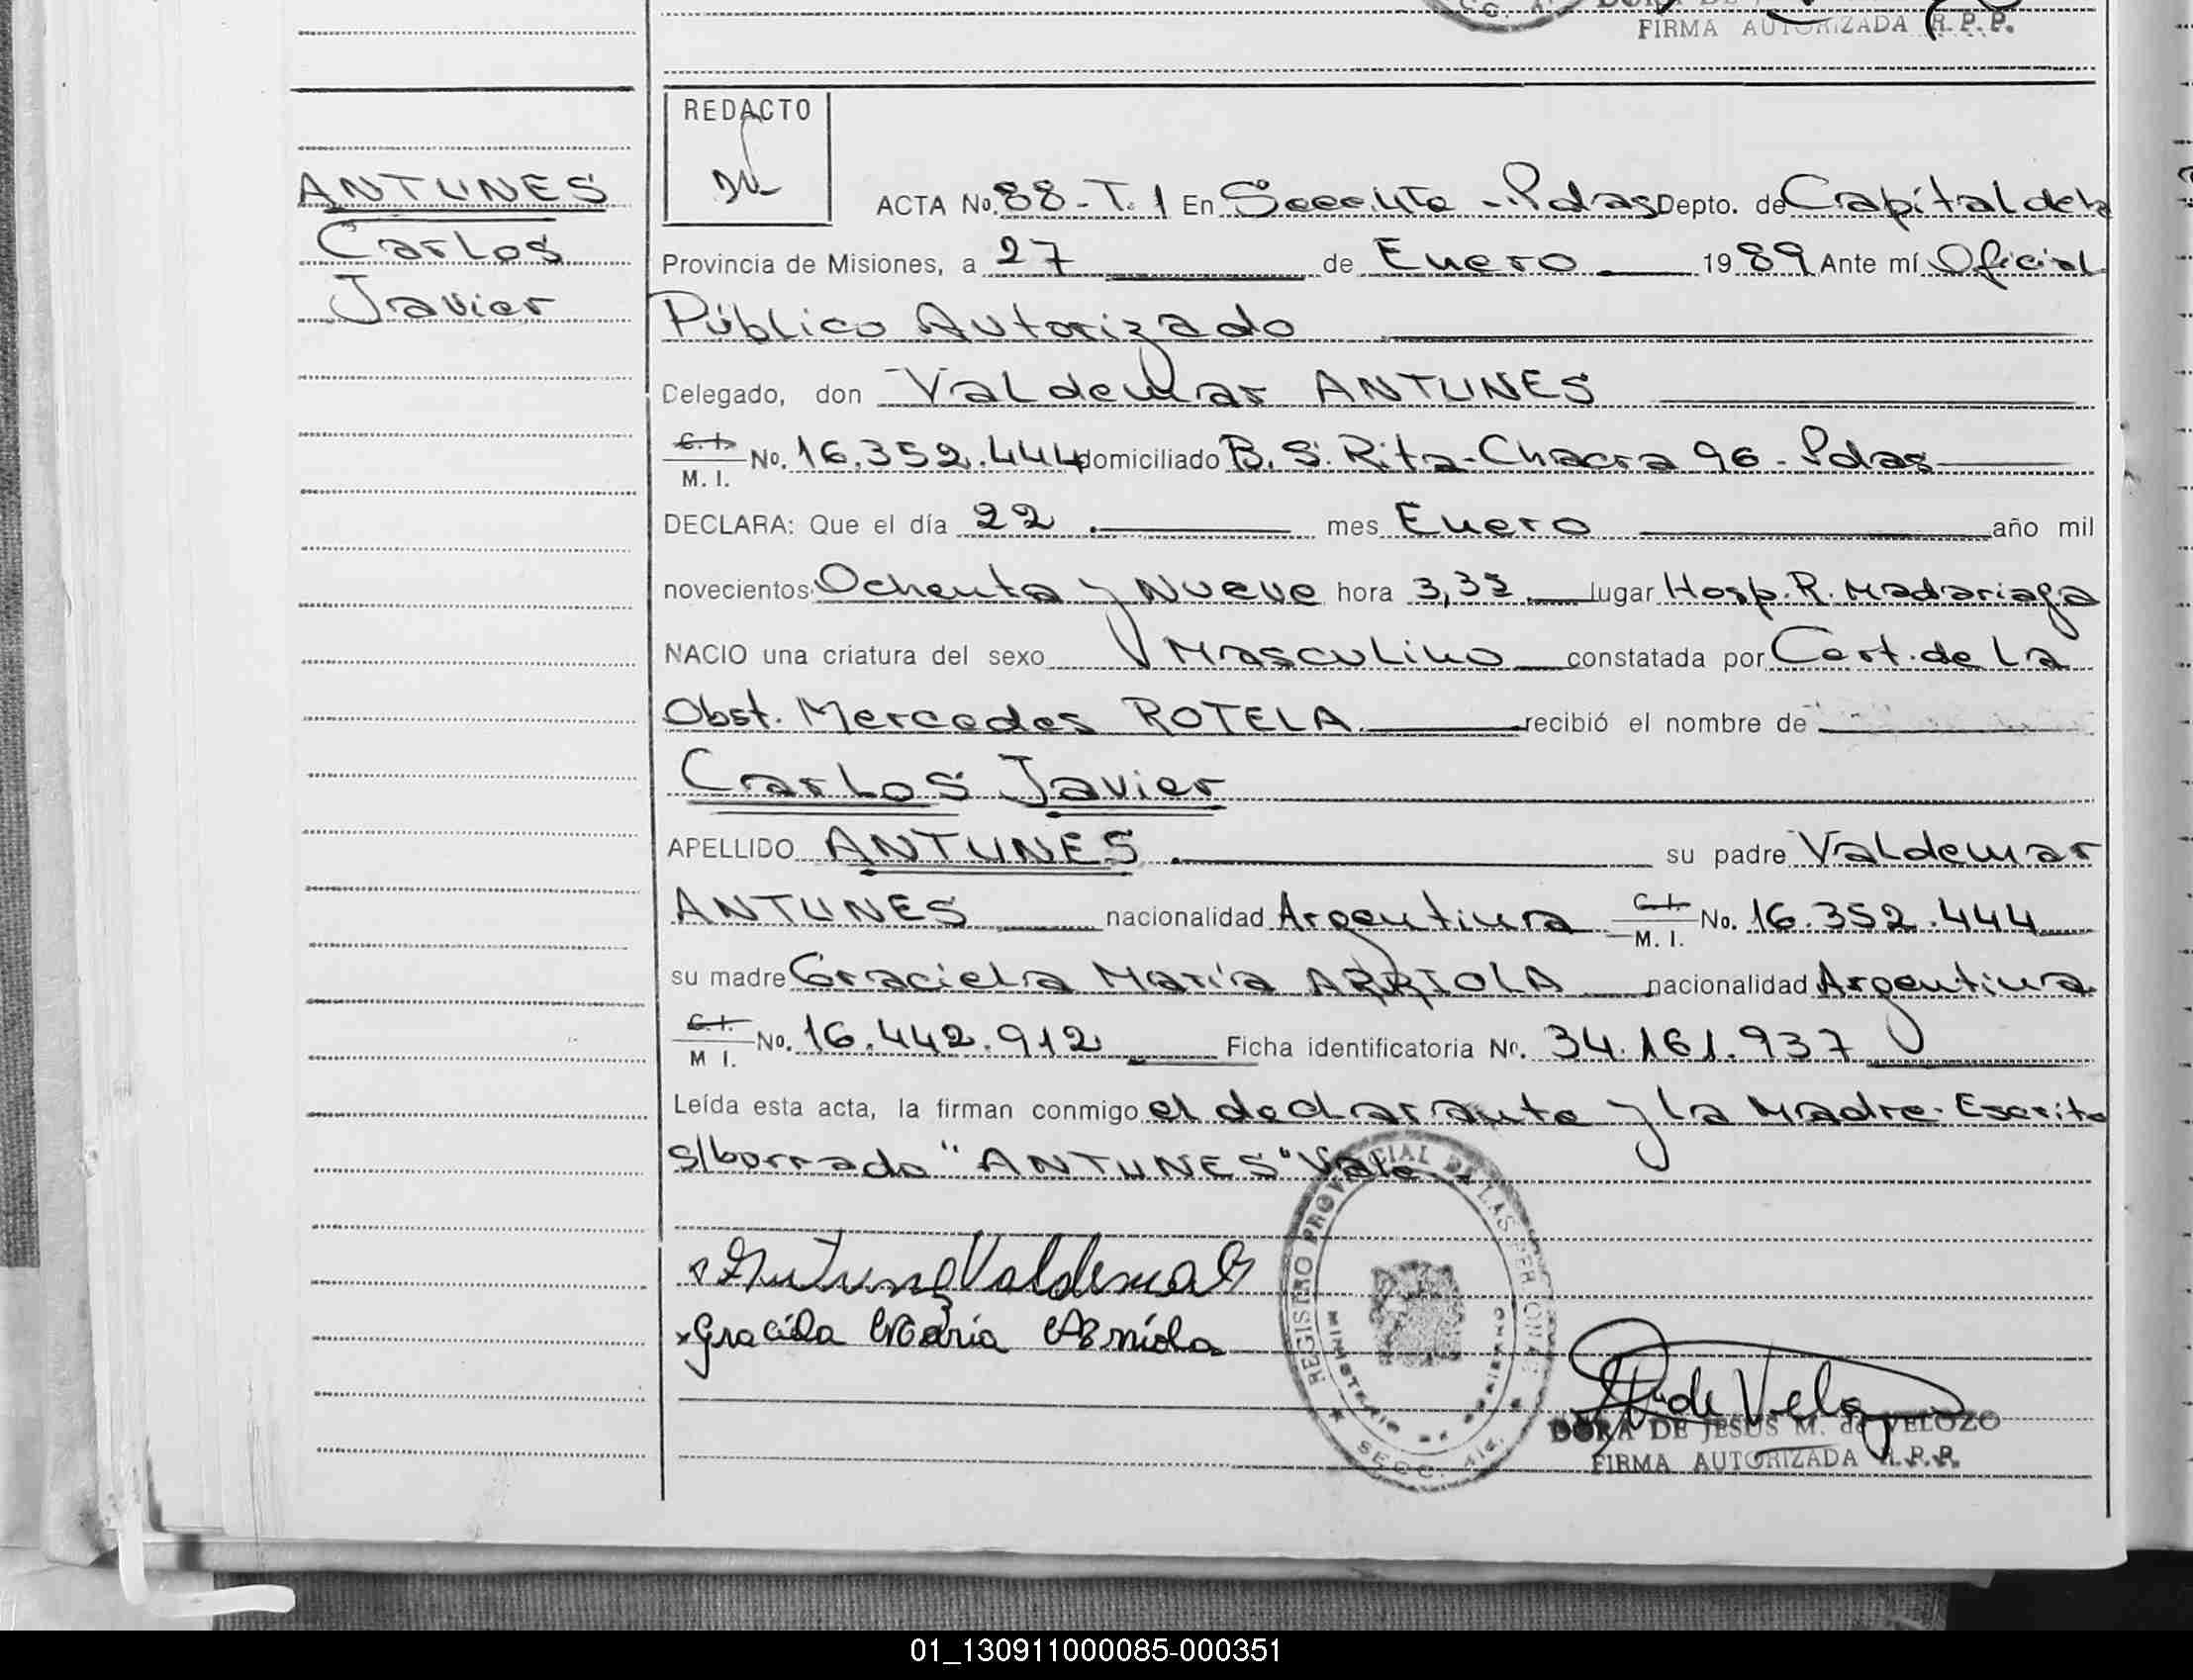 FIRMA AUTORIZADA R.P.P.
REDACTO
ANTUNES
Carlos
Javier
ACTA No. 88-T.1 En Secc.4ta - Pdas Depto. de Capital de la
Provincia de Misiones, a 27 de Enero 1989 Ante mí Oficial
Público Autorizado
Delegado, don Valdemar ANTUNES
C.I. M.I. No. 16.352.444 domiciliado B. S. Rita - Chacra 96 - Pdas
DECLARA: Que el día 22 mes Enero año mil
novecientos Ochenta y Nueve hora 3,35 lugar Hosp. R. Madariaga
NACIO una criatura del sexo Masculino constatada por Cert. de La
Obst. Mercedes ROTELA recibió el nombre de
Carlos Javier
APELLIDO ANTUNES su padre Valdemar
ANTUNES nacionalidad Argentina C.I. M.I. No. 16.352.444
su madre Graciela María ARRIOLA nacionalidad Argentina
C.I. M I. No. 16.442.912 Ficha identificatoria No. 34.161.937
Leída esta acta, la firman conmigo el declarante y la Madre. Escrito
s/borrado "ANTUNES" Vale.
Antunes Valdemar
Graciela María Arriola
REGISTRO PROVINCIAL DE LAS PERSONAS
MINISTERIO
SECC. 4ta.
DORA DE JESUS M. de VELOZO
FIRMA AUTORIZADA R.P.P.
01_130911000085-000351